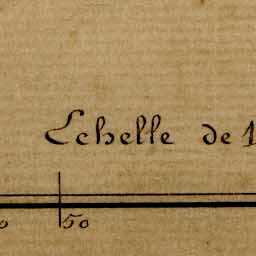 Echelle de 1
0 50